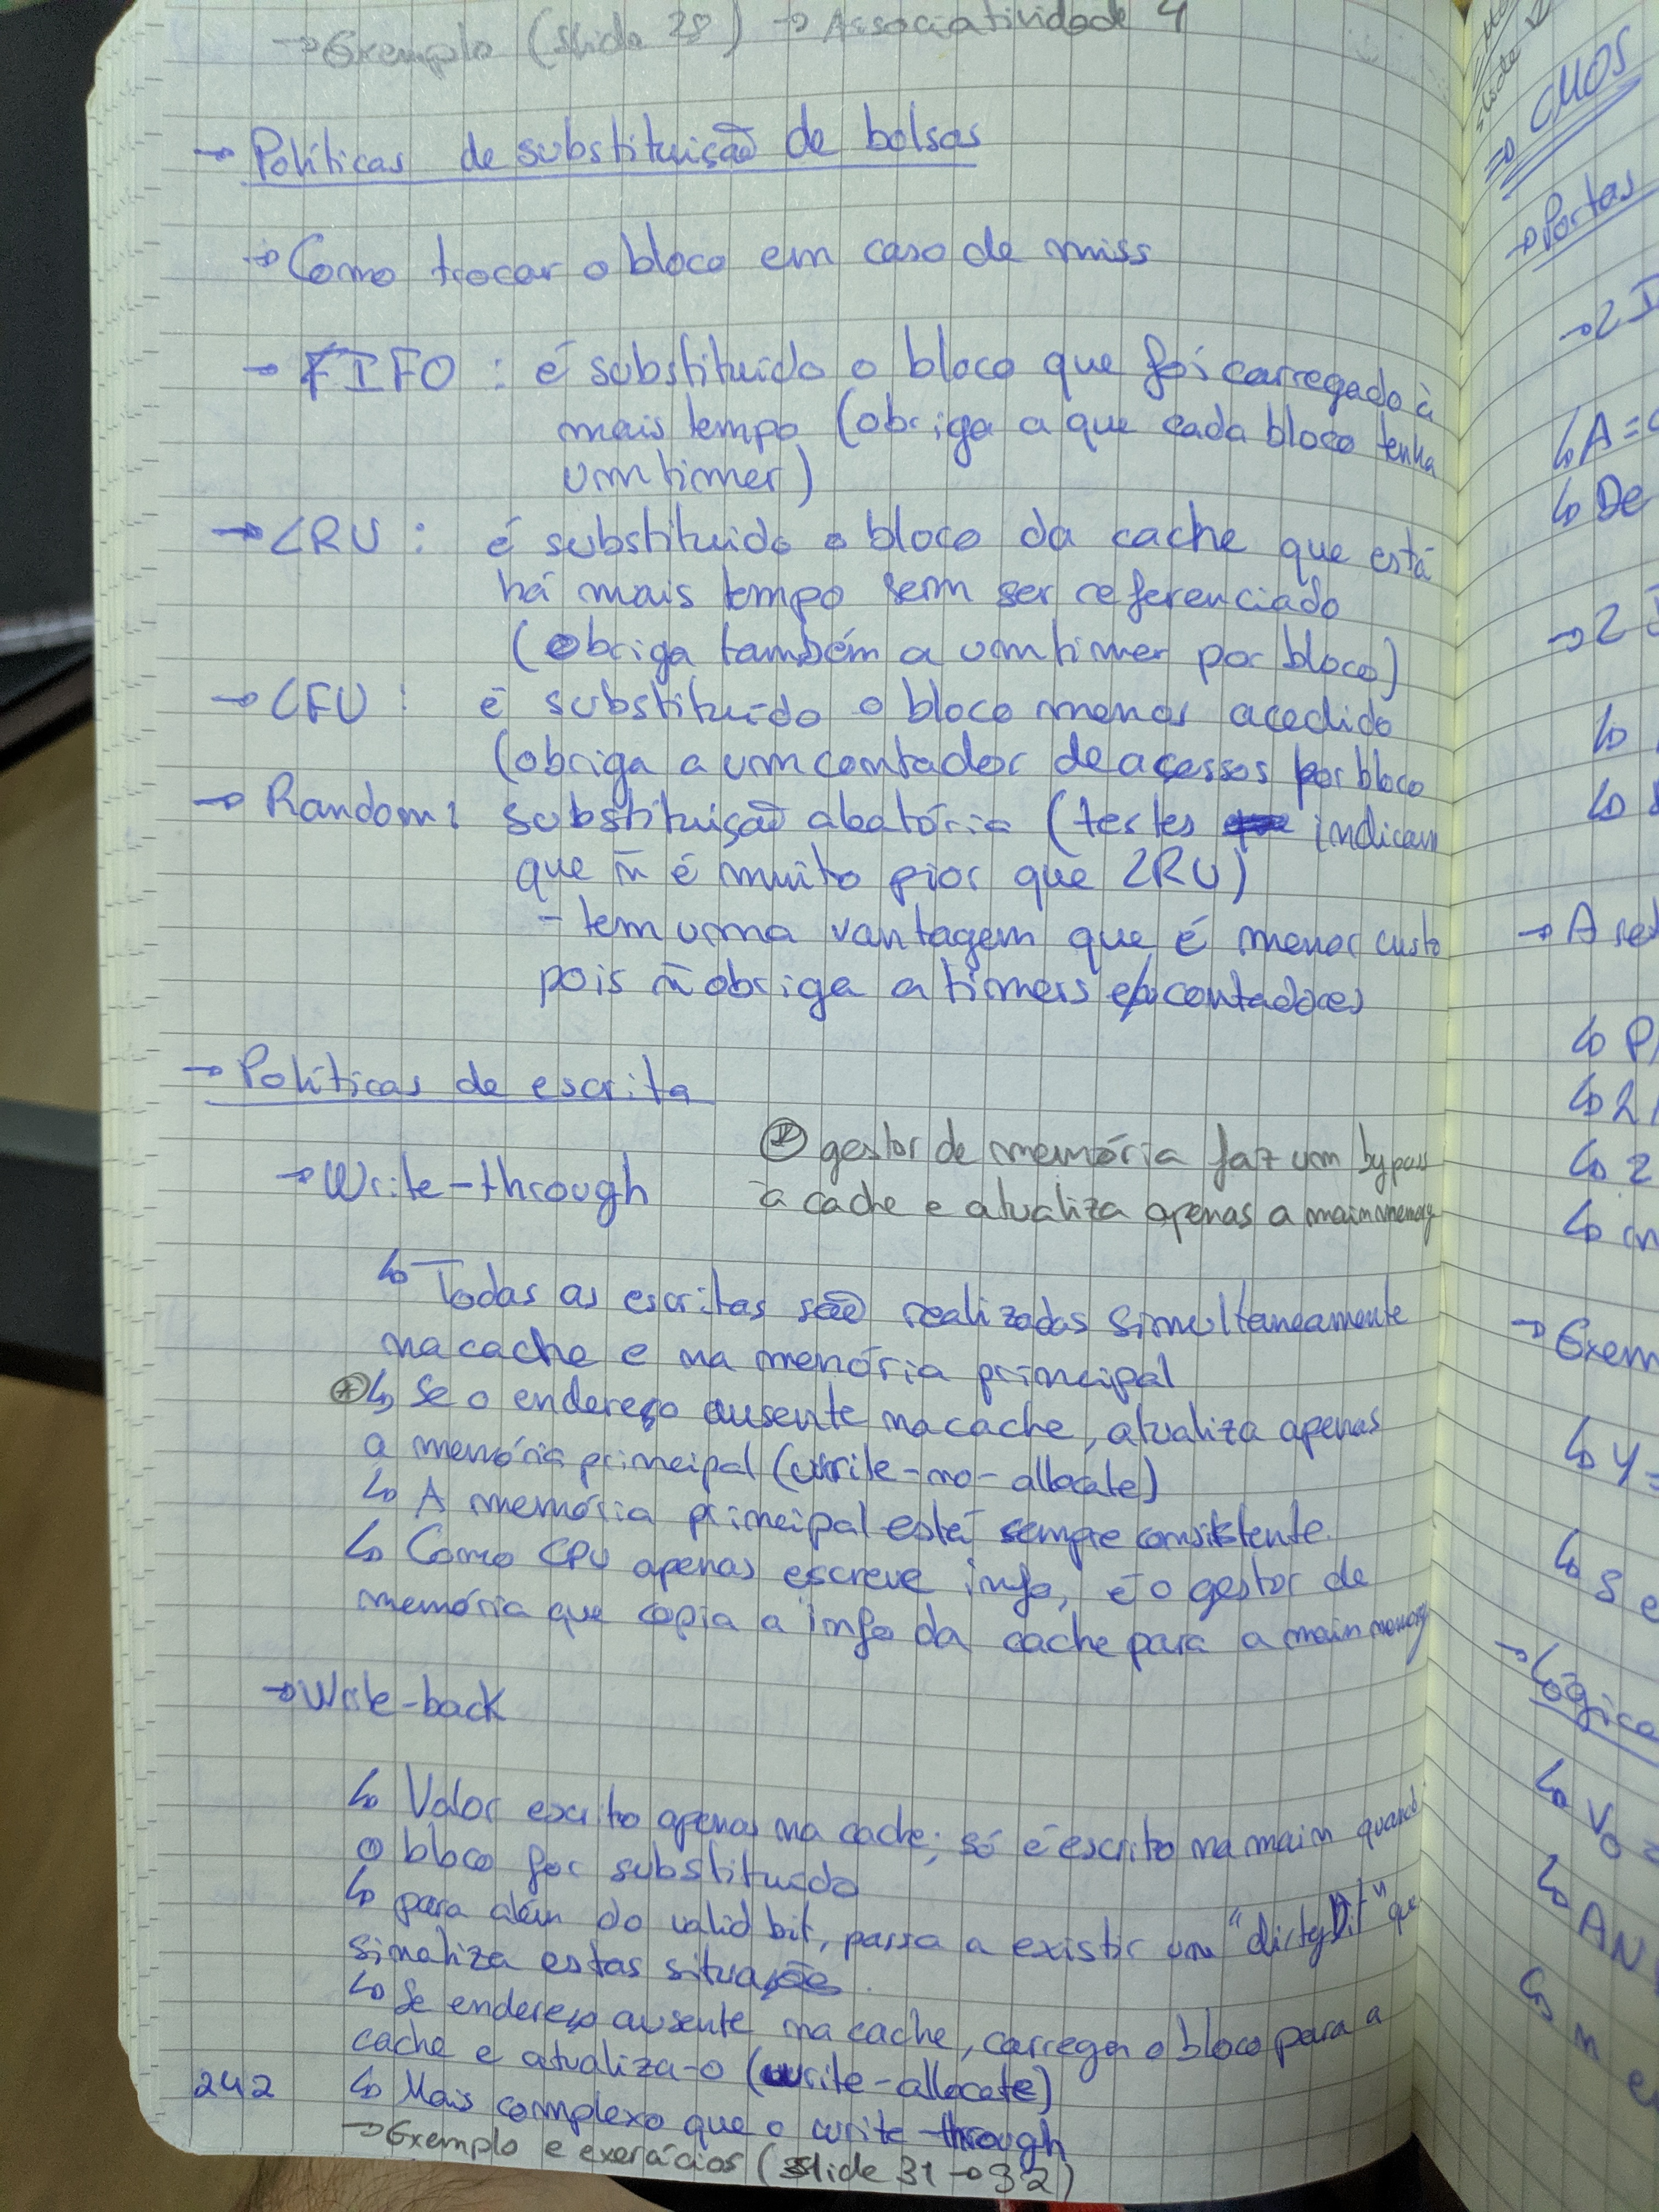 → Exemplo (slide 28) → Associatividade 4
→ Políticas de substituição de bolsas
→ Como trocar o bloco em caso de miss
→ FIFO : é substituído o bloco que foi carregado à
mais tempo (obriga a que cada bloco tenha
um timer)
→ LRU : é substituido o bloco da cache que está
há mais tempo sem ser referenciado
(obriga também a um timer por bloco)
→ LFU : é substituído o bloco menos acedido
(obriga a um contador de acessos por bloco
→ Random: substituição aleatória (testes indicam
que ñ é muito pior que LRU)
- tem uma vantagem que é menor custo
pois ñ obriga a timers e/ou contadores
→ Políticas de escrita
→ Write-through
⊛ gestor de memória faz um bypass
à cache e atualiza apenas a main memory
↳ Todas as escritas são realizadas simultaneamente
na cache e na memória principal
⊛↳ Se o endereço ausente na cache, atualiza apenas
a memória principal (write-no-allocate)
↳ A memória principal está sempre consistente
↳ Como CPU apenas escreve info, é o gestor de
memória que copia a info da cache para a main memory
→ Write-back
↳ Valor escrito apenas na cache; só é escrito na main quando
o bloco for substituído
↳ para além do valid bit, passa a existir um "dirty bit" que
sinaliza estas situações.
↳ Se endereço ausente na cache, carrega o bloco para a
cache e atualiza-o (write-allocate)
↳ Mais complexo que o write-through
→ Exemplo e exercícios (slide 31 → 32)
242
slide
⇒ CMOS
→ Portas
→ 2
↳ A =
↳ De
→ 2
→ A
↳ 2
↳ 2
→ Exem
↳ Y =
↳ S e
→ Lógica
↳ Vo
↳ AN